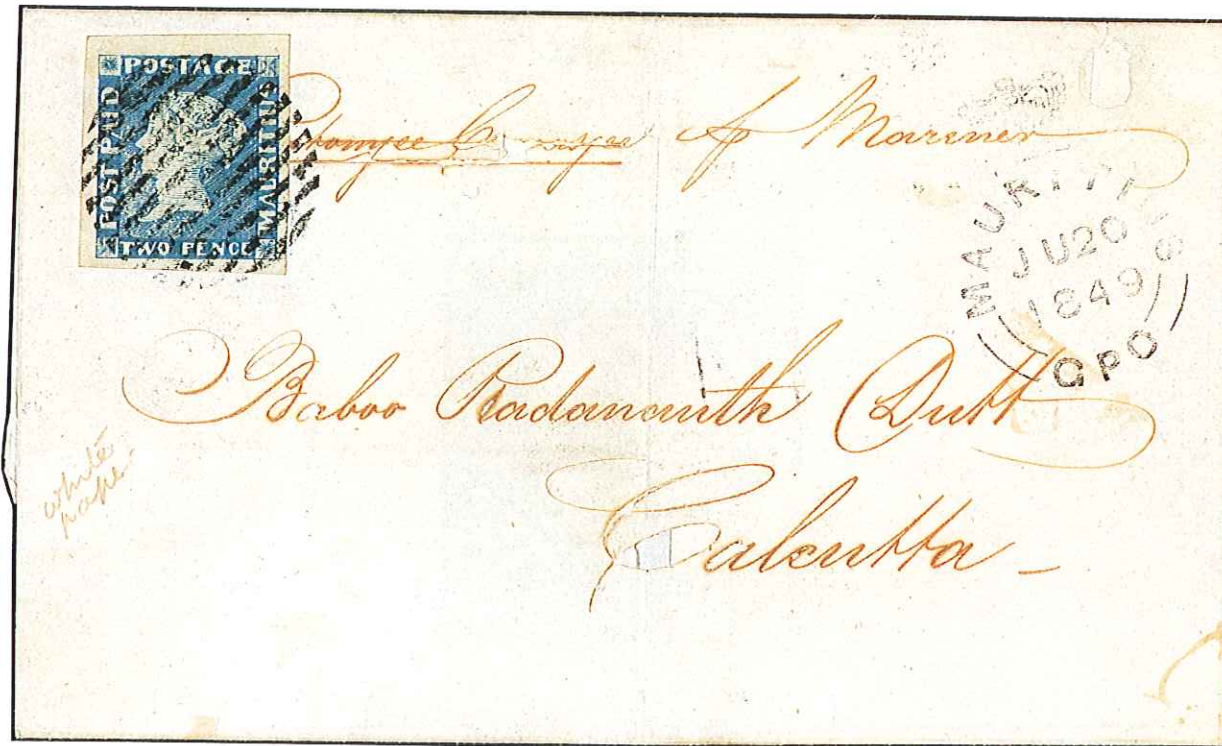 POSTAGE
POST PAID
MAURITIUS
TWO PENCE
p Mariner
MAURITIUS
JU 20
1849
GPO
Baboo Radananth Dutt
Calcutta -
white
paper